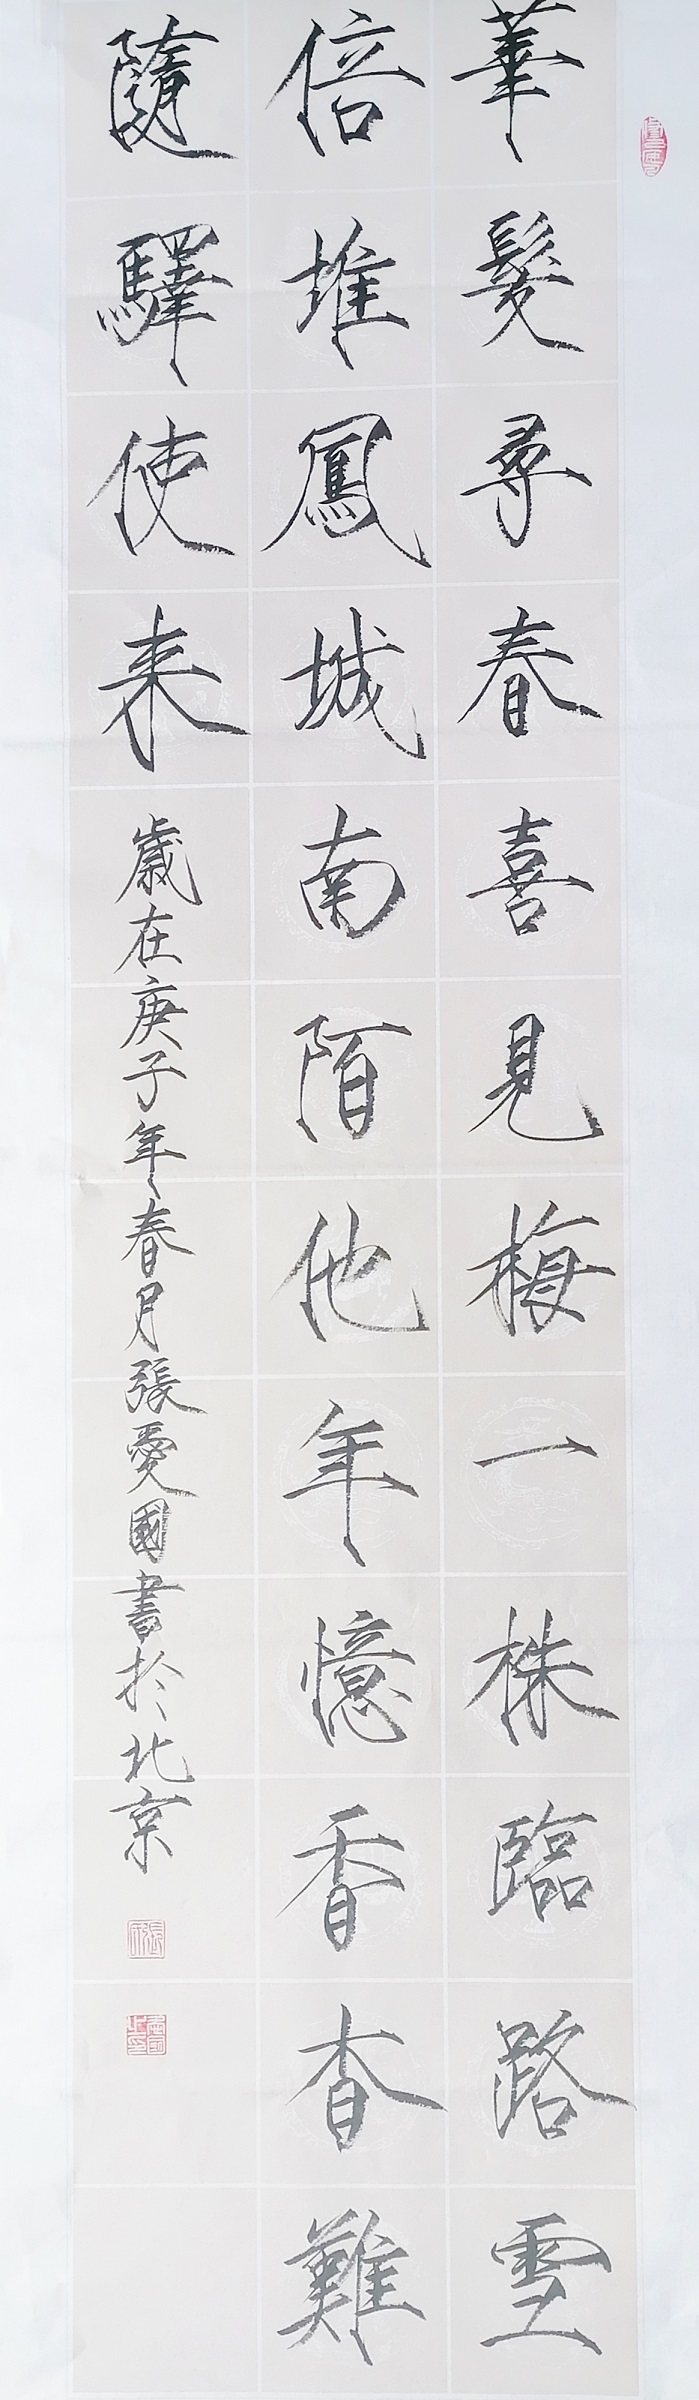 華髮尋春喜見梅一株臨路雪
倍堆鳳城南陌他年憶香杳難
隨驛使来
歲在庚子年春月張愛國書於北京